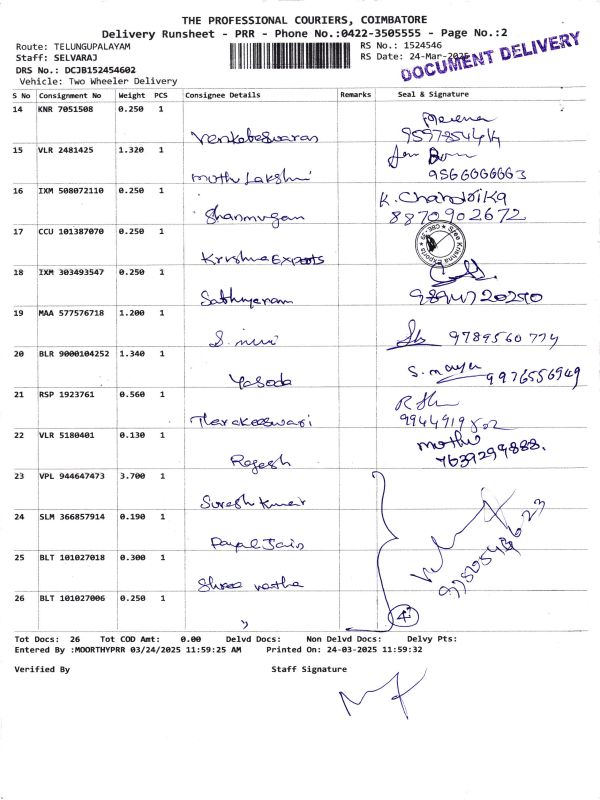 THE PROFESSIONAL COURIERS, COIMBATORE
Delivery Runsheet - PRR - Phone No.:0422-3505555 - Page No.:2
Route: TELUNGUPALAYAM
RS No.: 1524546
Staff: SELVARAJ
RS Date: 24-Mar-2025
DOCUMENT DELIVERY
DRS No.: DCJB152454602
Vehicle: Two Wheeler Delivery
S No Consignment No Weight PCS Consignee Details Remarks Seal & Signature
14 KNR 7051508 0.250 1
Venkateswaran
15 VLR 2481425 1.320 1
muthu Lakshmi 9566066663
16 IXM 508072110 0.250 1 K. Chandrika
Shanmugam 8870902672
17 CCU 101387070 0.250 1
Krishna Exports
18 IXM 303493547 0.250 1
Sathyaram
19 MAA 577576718 1.200 1
9789560774
20 BLR 9000104252 1.340 1
Yasoda 9976556949
21 RSP 1923761 0.560 1
Tharakeeswari
22 VLR 5180401 0.130 1
Rajesh 7639299888.
23 VPL 944647473 3.700 1
Suresh Kumar
24 SLM 366857914 0.190 1
Payal Jain
25 BLT 101027018 0.300 1
Shree
26 BLT 101027006 0.250 1
"
4
Tot Docs: 26 Tot COD Amt: 0.00 Delvd Docs: Non Delvd Docs: Delvy Pts:
Entered By :MOORTHYPRR 03/24/2025 11:59:25 AM Printed On: 24-03-2025 11:59:32
Verified By Staff Signature